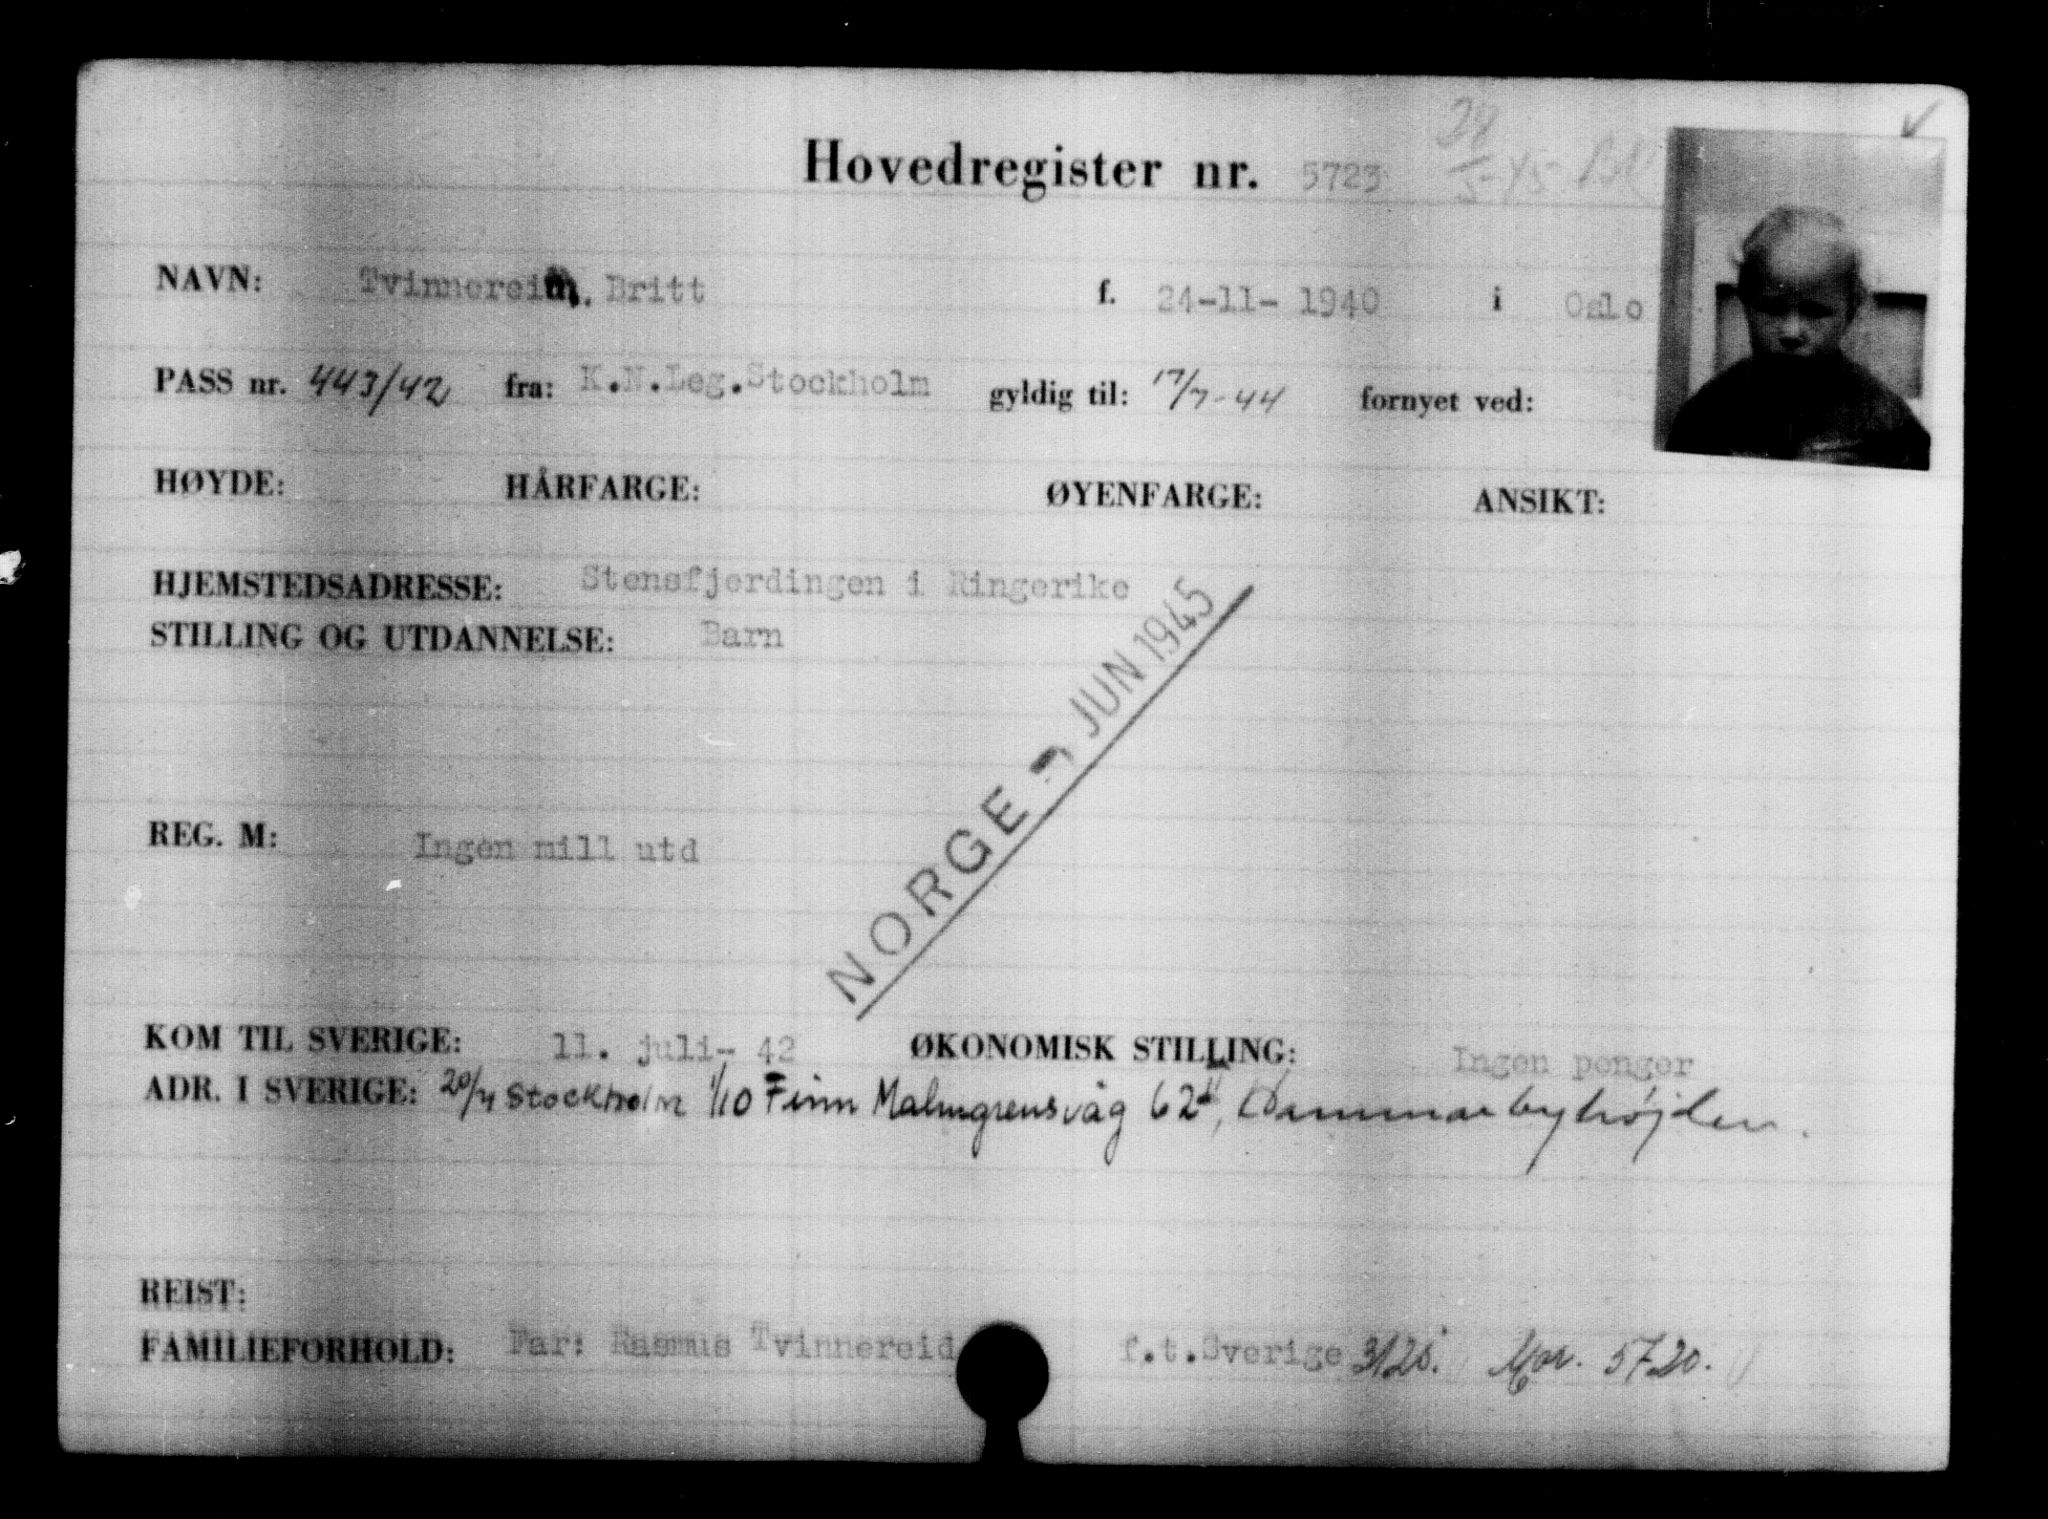 Hovedregister nr. 5723 28/5-45
NAVN: Tvinnereim, Britt f. 24-11- 1940 i Oslo
PASS nr. 443/42 fra: K.N.Leg.Stockholm gyldig til: 17/7-44 fornyet ved:
HØYDE: HÅRFARGE: ØYENFARGE: ANSIKT:
HJEMSTEDSADRESSE: Stensfjerdingen i Ringerike
STILLING OG UTDANNELSE: Barn
NORGE - 7 JUN 1945
REG. M: Ingen mill utd
KOM TIL SVERIGE: 11. juli- 42 ØKONOMISK STILLING: Ingen penger
ADR. I SVERIGE: 20/7 Stockholm 1/10 Finn Malmgrensväg 62II, Hammarbyhøjden.
REIST:
FAMILIEFORHOLD: Far: Rasmus Tvinnereid f.t.Sverige 3125. Mor. 5720.